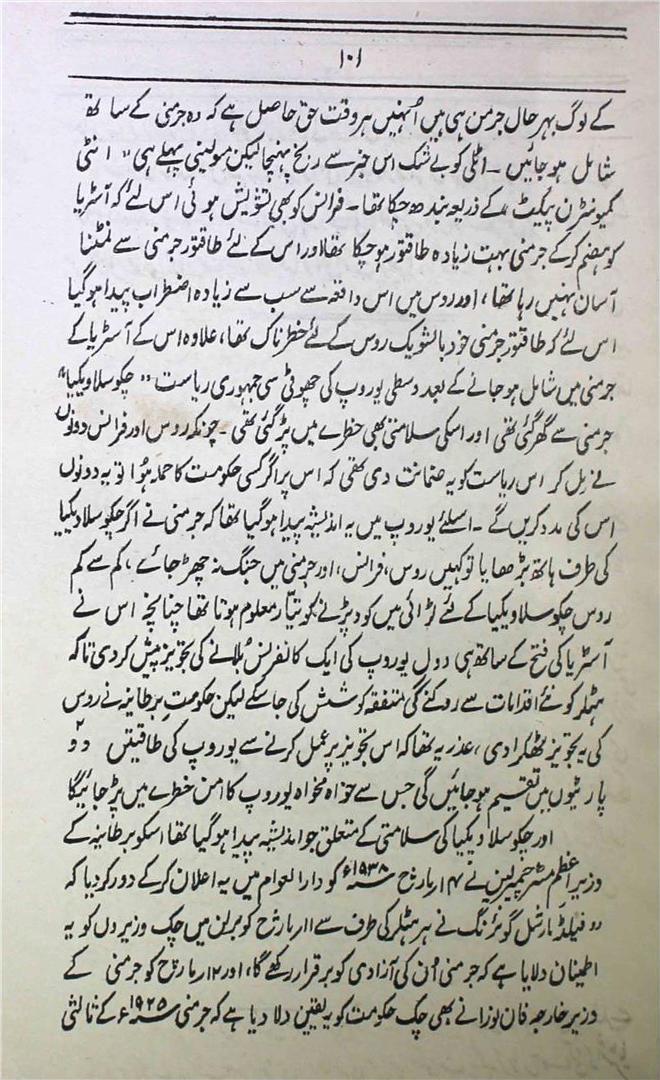 ۱۰۱
کے لوگ بہر حال جرمن ہی ہیں اُنہیں ہر وقت حق حاصل ہے کہ وہ جرمنی کے ساتھ
شامل ہو جائیں ۔ اٹلی کو بے شک اس خبر سے رنج پہنچا لیکن مسولینی پہلے ہی " انٹی
کمیونٹرن پیکیٹ " کے ذریعہ بندھ چکا تھا ۔ فرانس کو بھی تشویش ہوئی اس لئے کہ آسٹریا
کو ہضم کر کے جرمنی بہت زیادہ طاقتور ہو چکا تھا اور اس کے لئے طاقتور جرمنی سے نمٹنا
آسان نہیں رہا تھا ، اور روس میں اس واقعہ سے سب سے زیادہ اضطراب پیدا ہو گیا
اس لئے کہ طاقتور جرمنی خود بالشویک روس کے لئے خطرناک تھا ، علاوہ اس کے آسٹریا کے
جرمنی میں شامل ہو جانے کے بعد وسطی یوروپ کی چھوٹی سی جمہوری ریاست " چکوسلاویکیا "
جرمنی سے گھر گئی تھی اور اسکی سلامتی بھی خطرے میں پڑ گئی تھی ۔ چونکہ روس اور فرانس دونوں
نے مل کر اس ریاست کو یہ ضمانت دی تھی کہ اس پر اگر کسی حکومت کا حملہ ہوا تو یہ دونوں
اس کی مدد کریں گے ۔ اسلئے یوروپ میں یہ اندیشہ پیدا ہو گیا تھا کہ جرمنی نے اگر چکوسلاویکیا
کی طرف ہاتھ بڑھایا تو کہیں روس ، فرانس ، اور جرمنی میں جنگ نہ چھڑ جائے ، کم سے کم
روس چکوسلاویکیا کے لئے لڑائی میں کود پڑنے کو تیّار معلوم ہوتا تھا چنانچہ اس نے
آسٹریا کی فتح کے ساتھ ہی دول یوروپ کی ایک کانفرنس بُلانے کی تجویز پیش کر دی تاکہ
ہٹلر کو نئے اقدامات سے روکنے کی متفقہ کوشش کی جا سکے لیکن حکومتِ برطانیہ نے روس
کی یہ تجویز ٹھکرا دی ، عذر یہ تھا کہ اس تجویز پر عمل کرنے سے یوروپ کی طاقتیں دو۲
پارٹیوں میں تقسیم ہو جائیں گی جس سے خواہ مخواہ یوروپ کا امن خطرے میں پڑ جائیگا
اور چکوسلاویکیا کی سلامتی کے متعلق جو اندیشہ پیدا ہو گیا تھا اسکو برطانیہ کے
وزیر اعظم مسٹر چمبرلین نے ۱۴ مارچ ۱۹۳۸ء کو دار العوام میں یہ اعلان کر کے دور کر دیا کہ
" فیلڈ مارشل گوئرنگ نے ہر ہٹلر کی طرف سے ۱۱ مارچ کو برلن میں چک وزیر دں کو یہ
اطمینان دلایا ہے کہ جرمنی اُن کی آزادی کو برقرار رکھے گا ، اور ۱۲ مارچ کو جرمنی کے
وزیر خارجہ فان نوراتھ نے بھی چک حکومت کو یہ یقین دلا دیا ہے کہ جرمنی ۱۹۲۵ء کے ثالثی